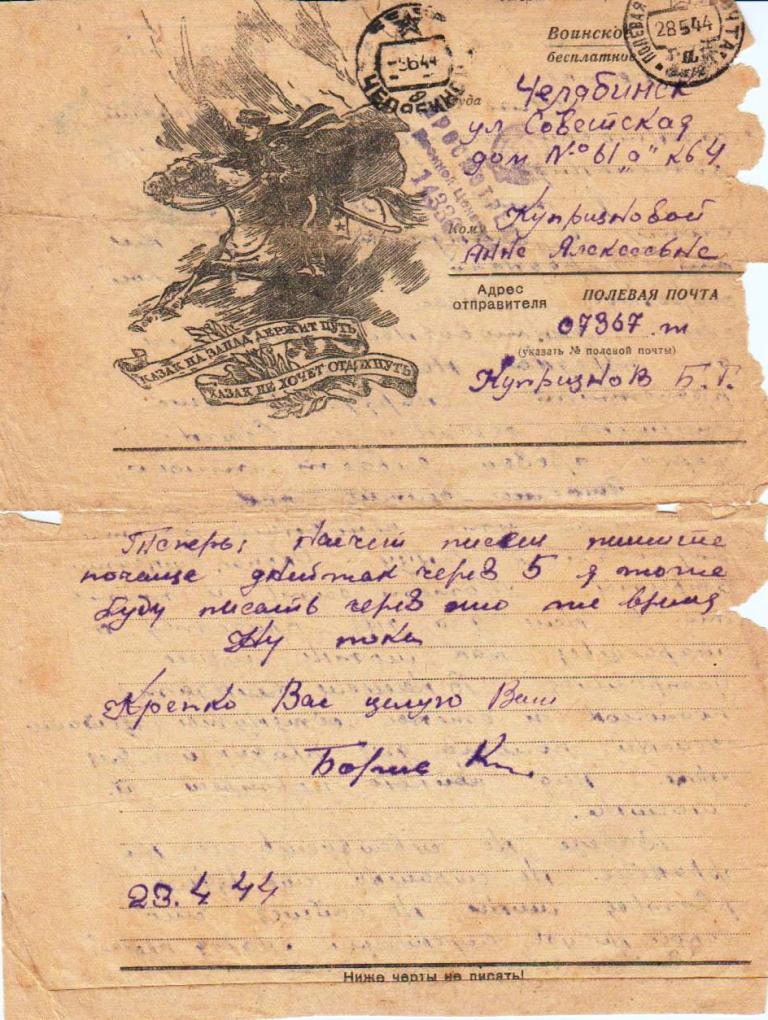 Воинское
бесплатно
-5 6 44
ЧЕЛЯБИНСК
ПОЛЕВАЯ ПОЧТА
28 5 44
Куда Челябинск
ул Советская
дом № 61 "а" к 64
ПРОСМОТРЕНО
Военной Цензурой
Кому Куприяновой
Анне Алексеевне
Адрес отправителя
ПОЛЕВАЯ ПОЧТА
07367 т
(указать № полевой почты)
Куприянов Б. Г.
КАЗАК НА ЗАПАД ДЕРЖИТ ПУТЬ,
КАЗАК НЕ ХОЧЕТ ОТДОХНУТЬ
Теперь: Насчет писем пишите
почаще дней так через 5 я тоже
буду писать через это же время
Ну пока
Крепко Вас целую Ваш
Борис К
23.4 44
Ниже черты не писать!